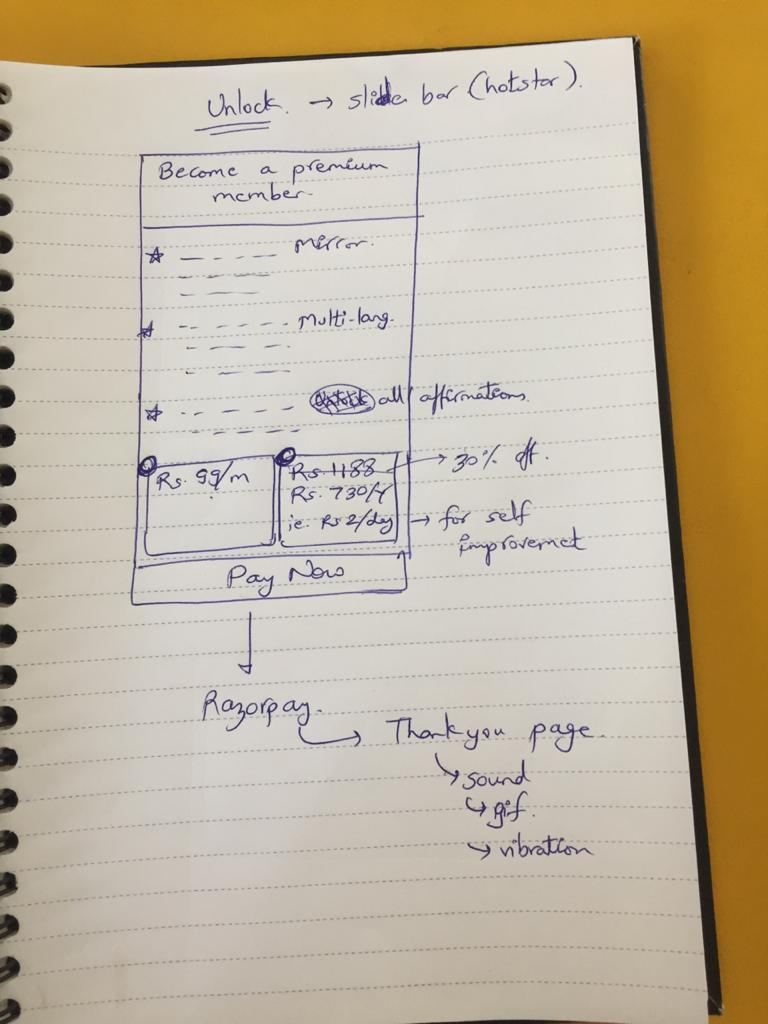 Unlock. → slide bar (hotstar).
Become a premium
member
Mirror.
Multi-lang.
all affirmations.
Rs. 99/m
Rs 1188 → 30% off.
Rs. 730/Y
ie. Rs 2/day → for self
improvemet
Pay Now
Razorpay.
Thank you page.
sound
gif.
vibration